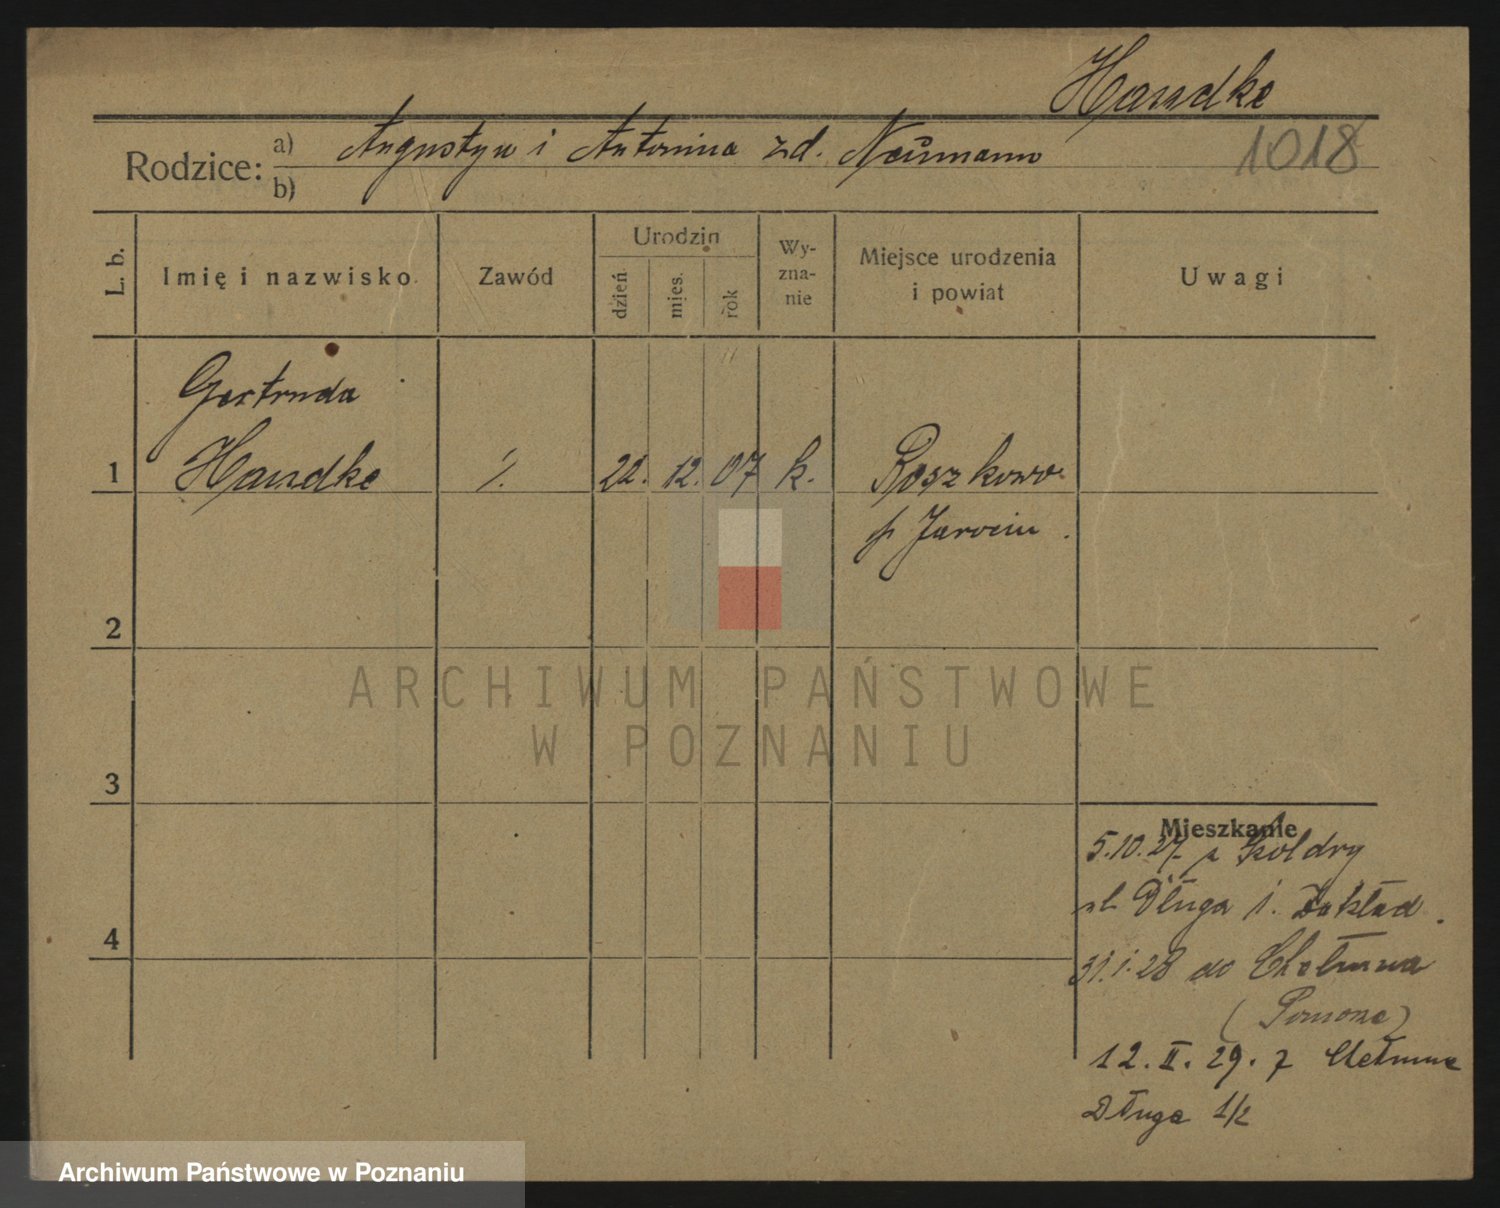 Handke
Rodzice: a) Augustyn i Antonina zd. Neŭmann 1018
b)
L. b. Imię i nazwisko Zawód Urodzin dzień mies. rok Wyznanie Miejsce urodzenia i powiat Uwagi
Gertruda
1 Handke ./. 22. 12. 07 k. Roszkowo
p. Jarocin.
2
3
4
Mieszkanie
5.10.27. z Kołdry
ul. Długa 1. Zakład.
31.1.28 do Chełmna
(Pomorze)
12.II.29. z Chełmna
Długa 1/2
ARCHIWUM PAŃSTWOWE
W POZNANIU
Archiwum Państwowe w Poznaniu